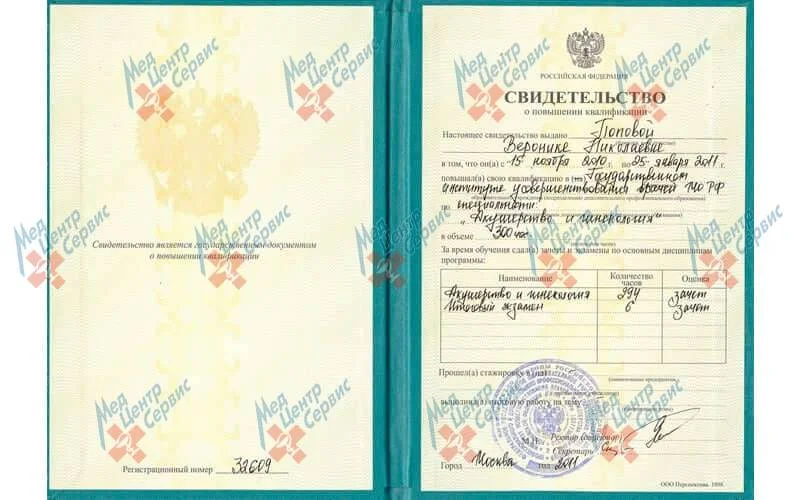 Свидетельство является государственным документом
о повышении квалификации
Регистрационный номер 32609
РОССИЙСКАЯ ФЕДЕРАЦИЯ
СВИДЕТЕЛЬСТВО
о повышении квалификации
Настоящее свидетельство выдано Поповой
Веронике Николаевне
в том, что он(а) с "15" ноября 2010 г. по "25" января 2011 г.
повышал(а) свою квалификацию в (на) Государственном
институте усовершенствования врачей МО РФ
по специальности:
"Акушерство и гинекология"
в объеме 300 час
(количество часов)
За время обучения сдал(а) зачеты и экзамены по основным дисциплинам
программы:
Наименование Количество часов Оценка
Акушерство и гинекология 294 зачет
Итоговый экзамен 6 зачет
Прошел(а) стажировку в (на)
(наименование предприятия,
выполнил(а) итоговую работу на тему:
Ректор (директор)
М.П. Секретарь
Город Москва год 2011
ООО Перспектива. 1998.
Мед Центр Сервис